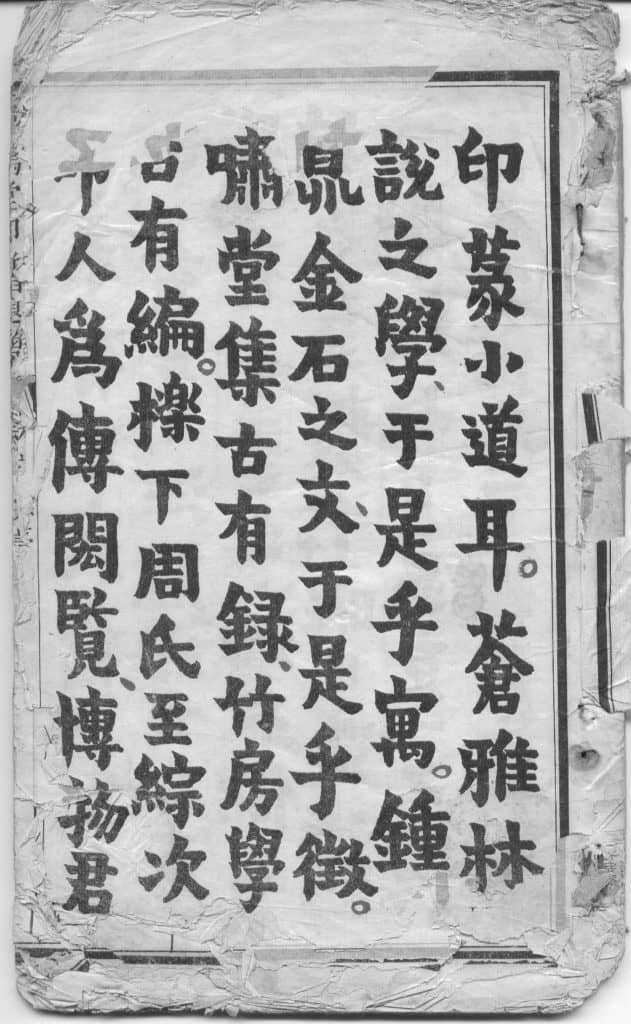 印篆小道耳。蒼雅林
說之學、于是乎寓。鍾
鼎金石之文、于是乎徵。
嘯堂集古有録、竹房學
古有編。櫟下周氏至綜次
印人爲傳閎覽、博物君